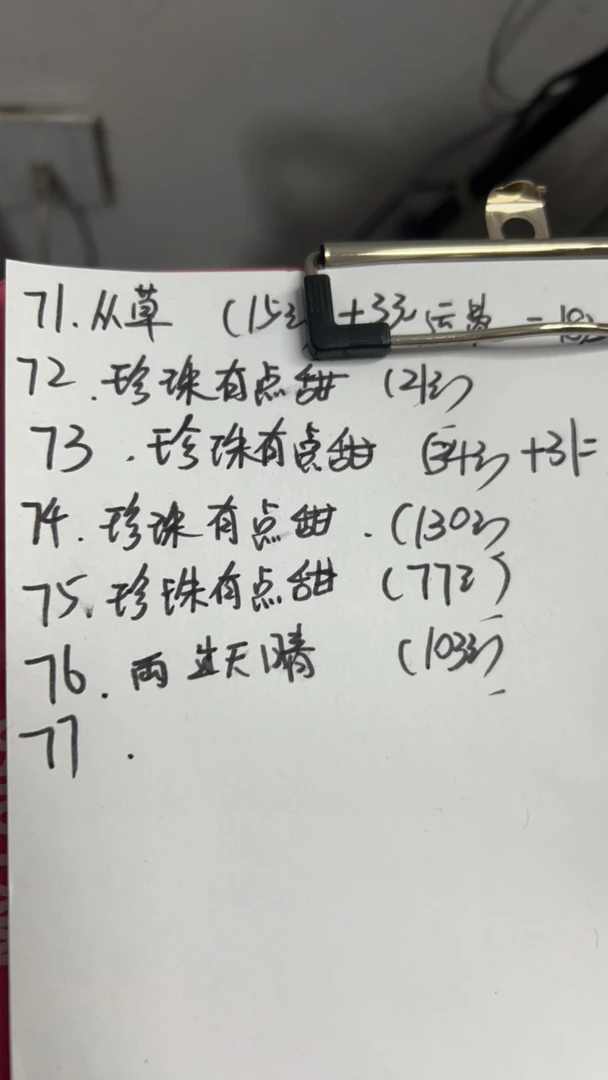 71.从草 (15元 +3元运费 = 18元
72.珍珠有点甜 (21元)
73.珍珠有点甜 (34元) +31=
74.珍珠有点甜.(130元)
75.珍珠有点甜 (77元)
76.雨过天晴 (103元)
77.